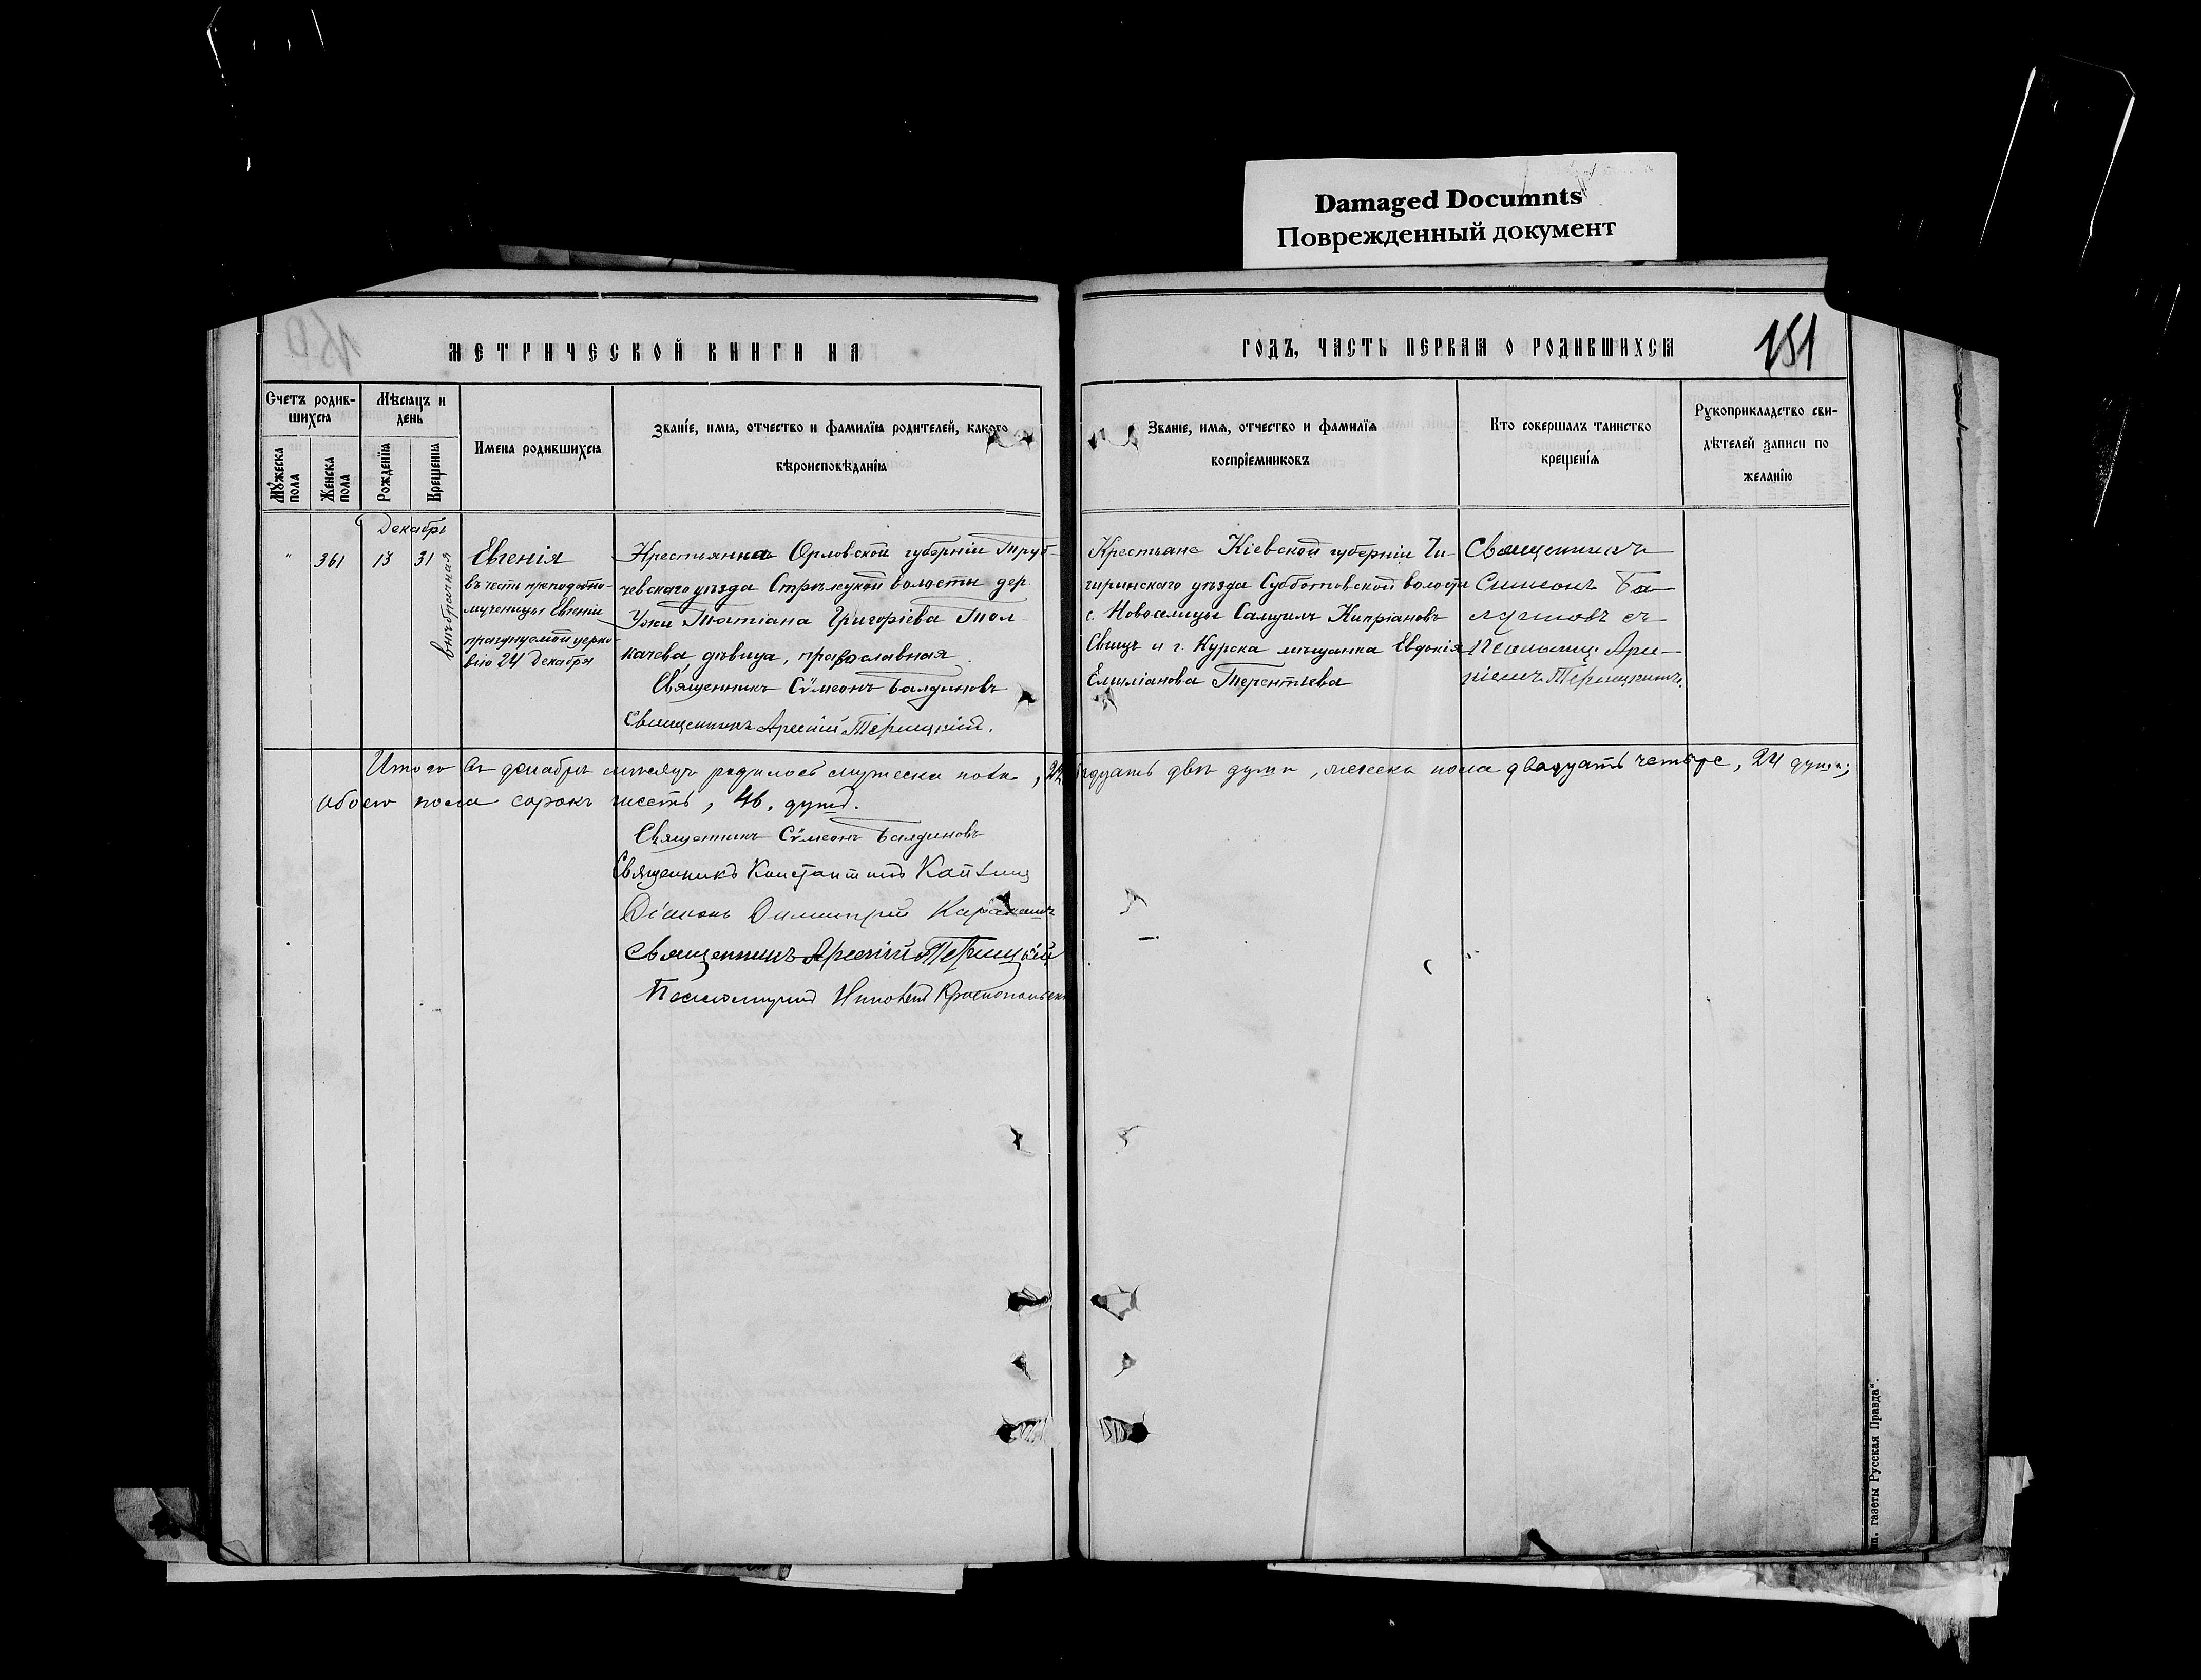 Damaged Documnts
Поврежденный документ
МЕТРИЧЕСКОЙ КНИГИ НА
ГОДЪ, ЧАСТЬ ПЕРВАЯ О РОДИВШИХСЯ
151
Счетъ родив-
шихся
Мужеска пола
Женска пола
Мѣсяцъ и
день
Рожденія
Крещенія
Имена родившихся
Званіе, имя, отчество и фамилія родителей, какого
вѣроисповѣданія
Званіе, имя, отчество и фамилія
воспріемниковъ
Кто совершалъ таинство
крещенія
Рукоприкладство сви-
дѣтелей записи по
желанію
Декабрь
" 361 13 31
внѣбрачная
Евгенія
въ честь преподобно-
мученицы Евгеніи
празднуемой церко-
вію 24 декабря
Крестьянка Орловской губерніи Труб-
чевского уѣзда Стрѣлецкой волости дер.
Ужи Татіана Григоріева Тол-
качева, дѣвица, православная.
Священникъ Сѵмеонъ Балдиновъ
Священникъ Арсеній
Крестьяне Кіевской губерніи Чи-
гиринскаго уѣзда Субботовской волости
с. Новоселицы Самуилъ Кипріановъ
и г. Курска мѣщанка Евдокія
Емиліанова Терентьева
Священникъ
Симеонъ
съ
Итого въ декабрѣ мѣсяцѣ родилось мужеска пола, 22, двадцать двѣ души, женска пола двадцать четыре, 24 души;
обоего пола сорокъ шесть, 46, душъ.
Священникъ Сѵмеонъ Балдиновъ
Священникъ Константинъ
Діаконъ Димитрій
Священникъ Арсеній
Псаломщикъ
газеты Русская Правда".